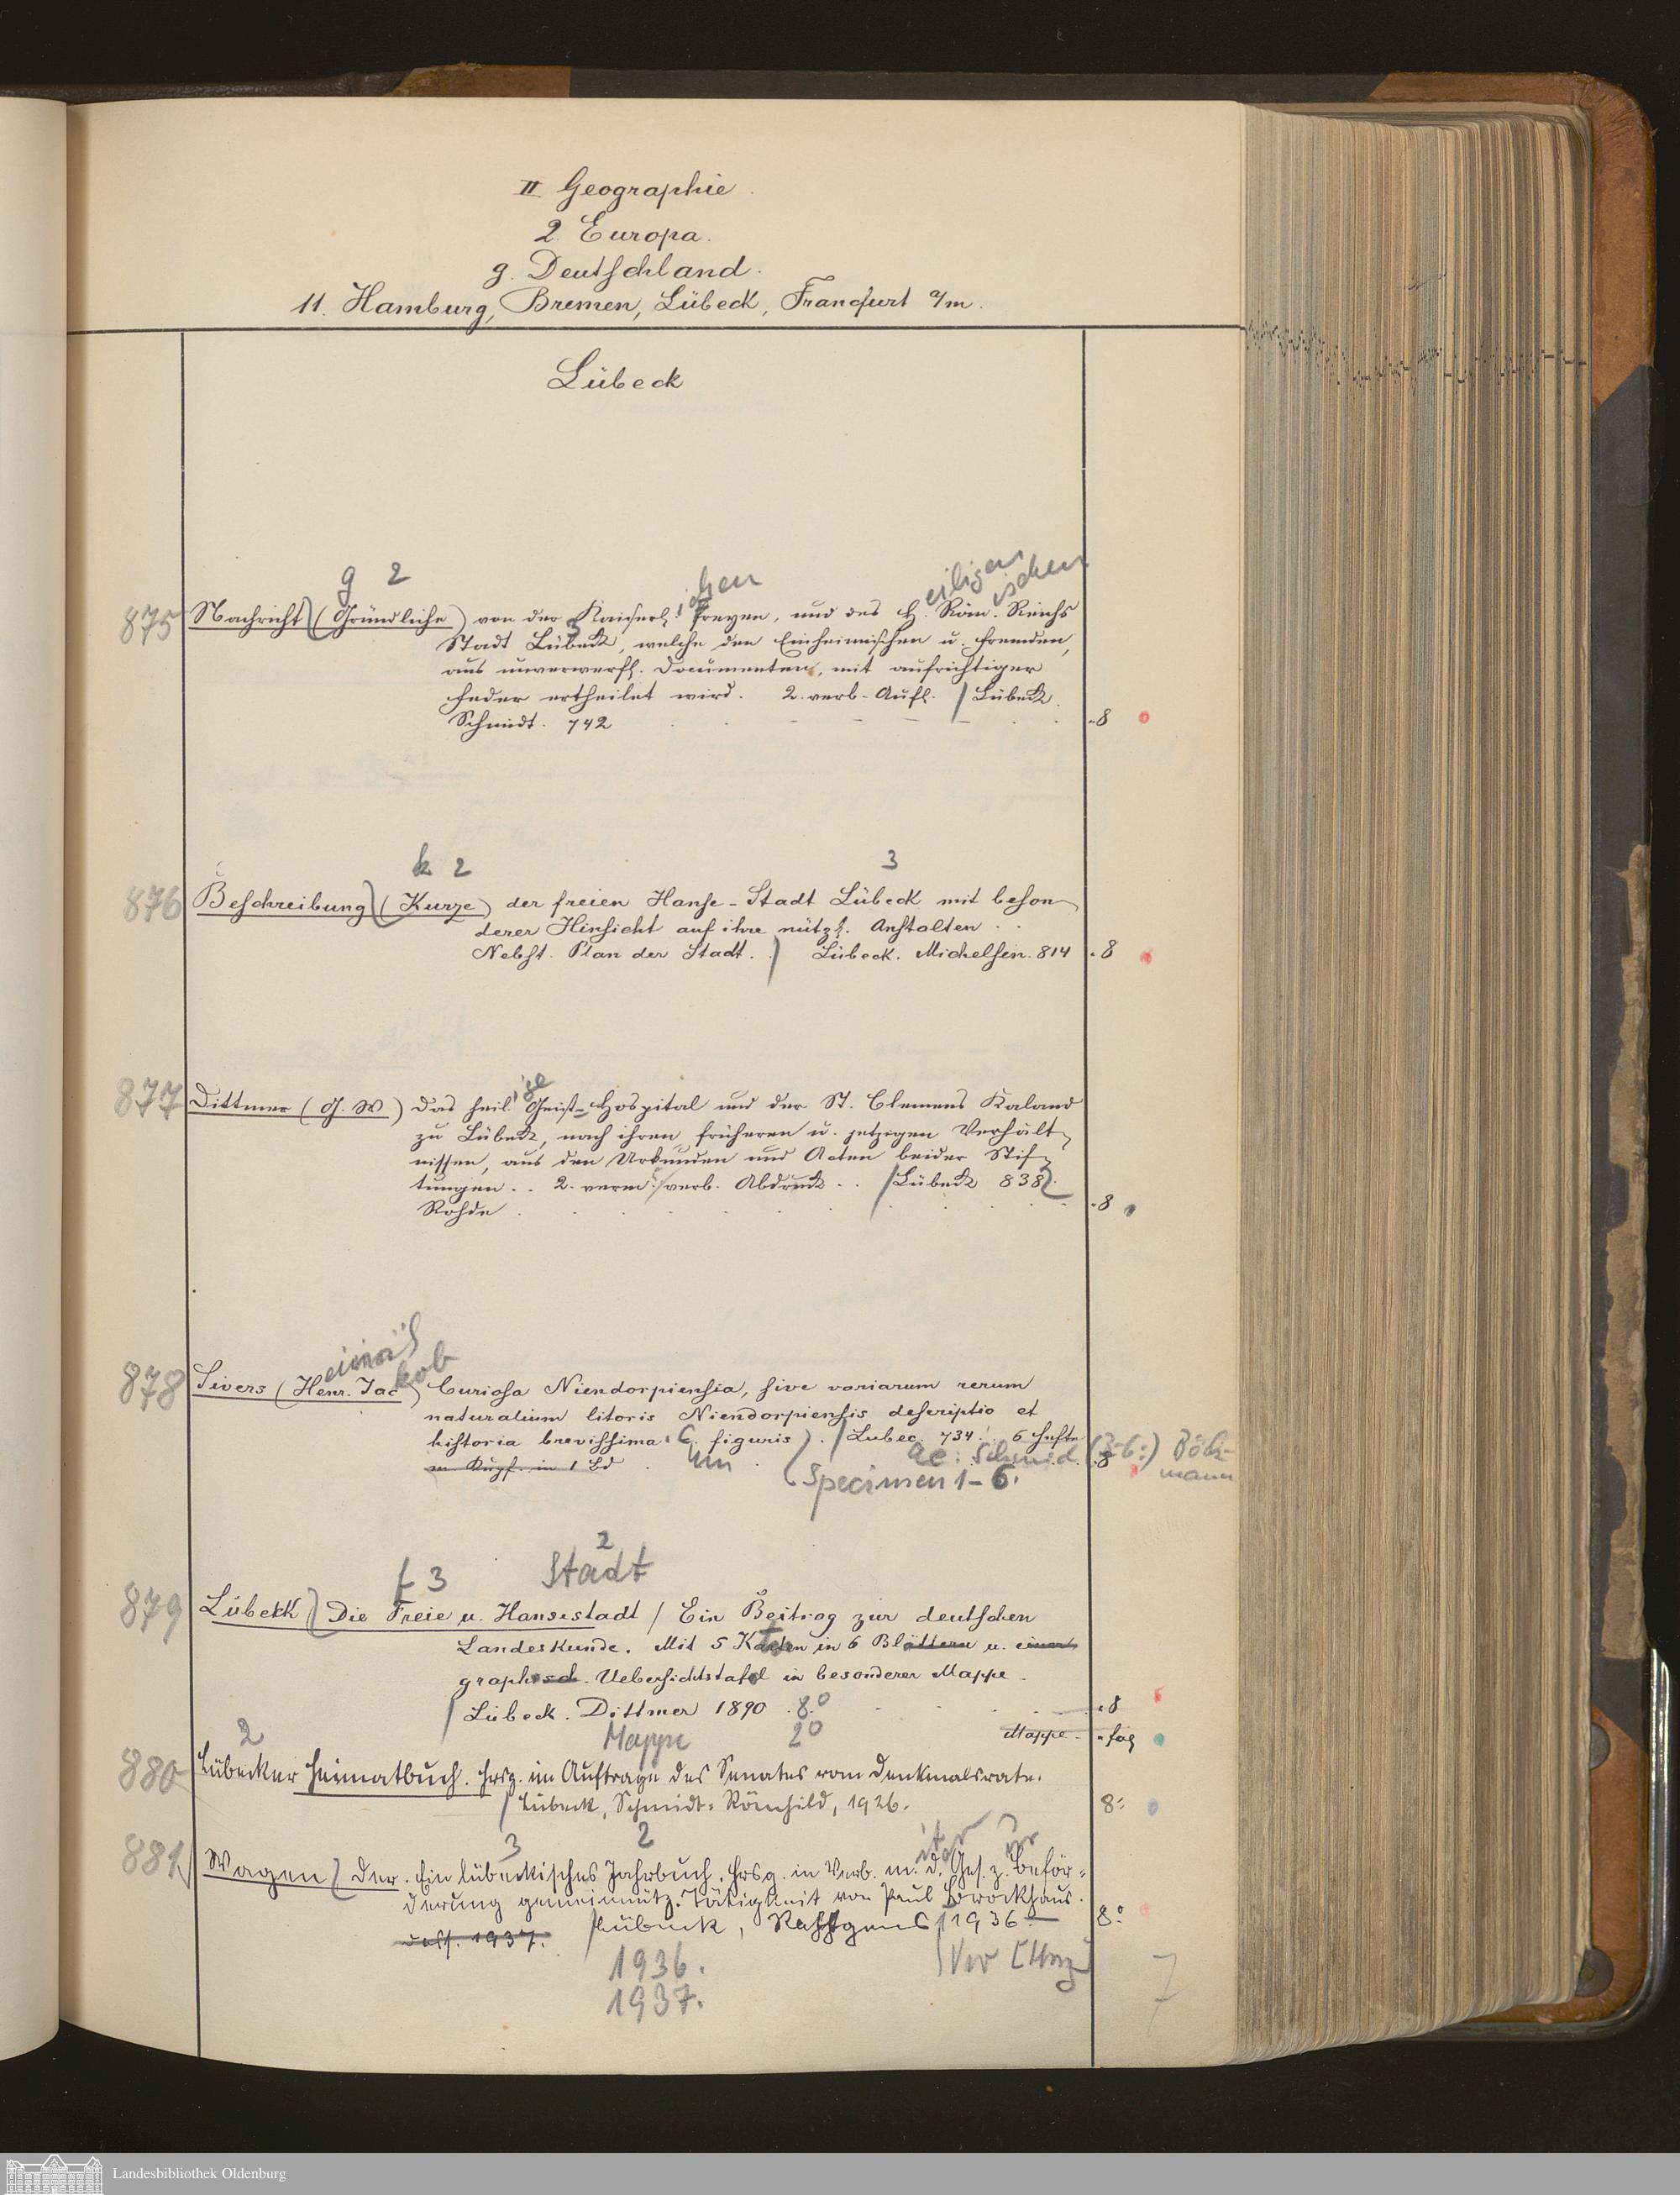 II Geographie.
2. Europa.
g. Deutschland.
11. Hamburg, Bremen, Lübeck, Francfurt a/m.
Lübeck
g 2 ichen eiligen ischen
875 Nachricht (Gründliche) von der Kaiserl. Freyen, und des H. Röm. Reichs
Stadt Lübeck, welche den Einheimischen u. Fremden,
aus unverwerfl. Documenten, mit aufrichtiger
Feder ertheilet wird. 2. verb. Aufl. / Lübeck.
Schmidt. 742 8
k 2 3
876 Beschreibung (Kurze) der freien Hanse-Stadt Lübeck mit beson
derer Hinsicht auf ihre nützl. Anstalten . .
Nebst. Plan der Stadt. Lübeck. Michelsen. 814 8
ige
877 Dittmer (G. W) Das heil. Geist-Hospital und der St. Clemens Kaland
zu Lübeck, nach ihren früheren u. jetzigen Verhält
nissen, aus den Urkunden und Acten beider Stif
tungen . . 2. verm. verb. Abdruck . . / Lübeck 838
Rohde 8
kob
878 Sivers (Henr. Jac) Curiosa Niendorpiensia, sive variarum rerum
naturalium litoris Niendorpiensis descriptio et
historia brevissima C. figuris). / Lubec. 734. 6 Hefte
m Kupf. in 1 Bd um ae: Schmid (3-6:) Böck-
mann 8
Specimen 1-6.
2
f 3 Stadt
879 Lübeck Die Freie u. Hansestadt / Ein Beitrag zur deutschen
Landeskunde. Mit 5 Karten in 6 Blättern u. einer
graphisch. Uebersichtstafel in besonderer Mappe.
/ Lübeck. Dittmer 1890 8.° 8
2 Mappe 2° Mappe fol
880 Lübecker Heimatbuch. Hrsg. im Auftrage des Senates vom Denkmalsrate.
/ Lübeck, Schmidt-Römhild, 1926. 8:
3 2
881 Wagen Der. Ein lübeckisches Jahrbuch. Hrsg. in Verb. m. d. Ges. z. Beför-
derung gemeinnütz. Tätigkeit von Paul Brockhaus.
dass. 1937. Lübeck, Rahtgens 1936 8°
1936.
1937.
7
Landesbibliothek Oldenburg